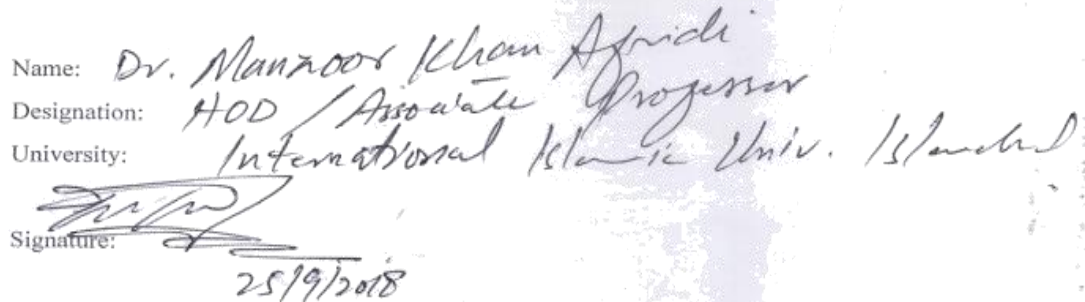 Name: Dr. Manzoor Khan Afridi
Designation: HOD / Associate Professor
University: International Islamic Univ. Islamabad
Signature:
25/9/2018